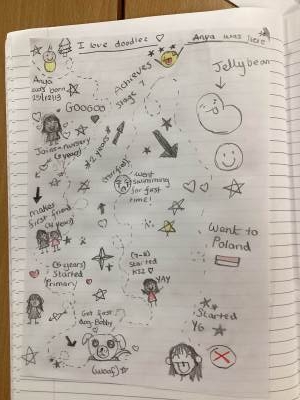 I love doodles
Anya was here
Anya
was born
Jellybean
Achieves
stage 7
GOOGOO
Joins nursery
(2 years)
*2 years*
(horrified)
Went
swimming
for first
time!
makes
first friend
(4 years)
Went to
Poland
(5 years)
Started
Primary
(7-8)
Started
KS2
YAY
Started
Y6
Got first
dog-Bobby
(woof)